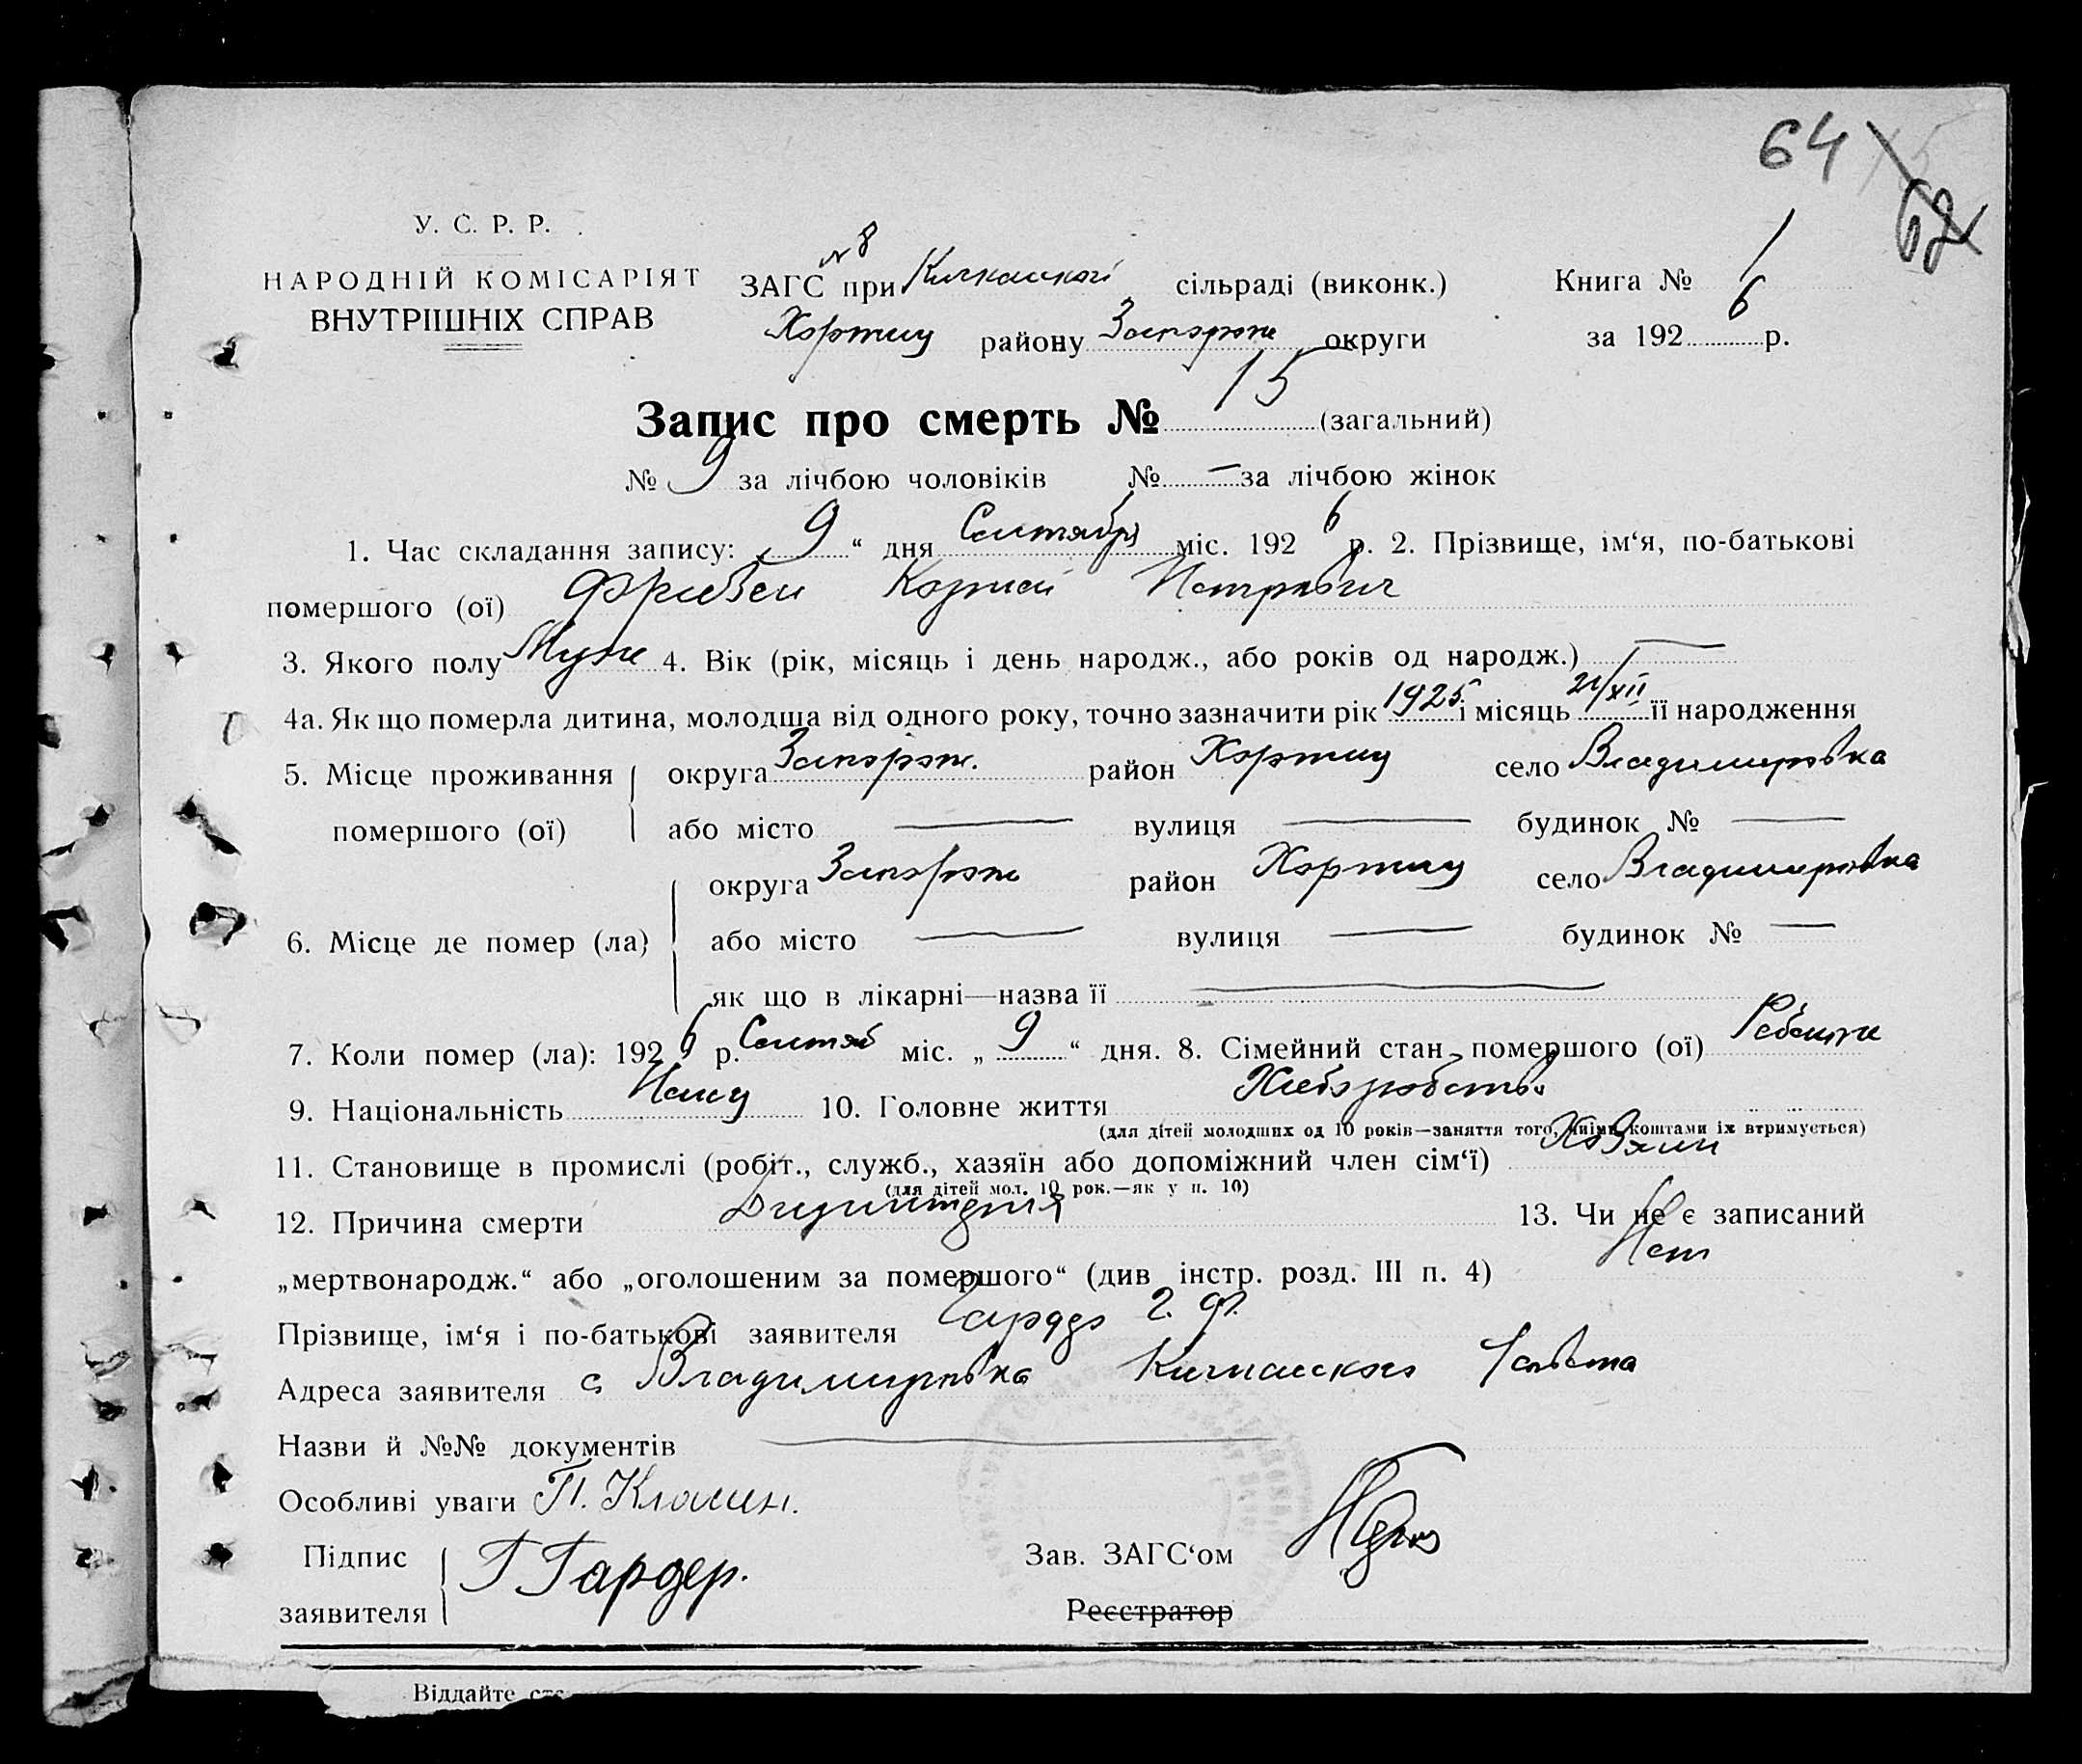 64
62
У. С. Р. Р.
НАРОДНІЙ КОМІСАРІЯТ
ВНУТРІШНІХ СПРАВ
№ 8
ЗАГС при Кичкасской сільраді (виконк.)
Хортиц району Запорож округи
Книга № 1
за 1926 р.
Запис про смерть № 15 (загальний)
№ 9 за лічбою чоловіків № — за лічбою жінок
1. Час складання запису: „ 9 “ дня Сентября міс. 1926 р. 2. Прізвище, ім‘я, по-батькові
помершого (ої) Фризен Корней Петрович
3. Якого полу Муж 4. Вік (рік, місяць і день народж., або років од народж.) —
4а. Як що померла дитина, молодша від одного року, точно зазначити рік 1925 і місяць 21/XII її народження
5. Місце проживання помершого (ої) округа Запорож. район Хортиц село Владимировка
або місто — вулиця — будинок № —
6. Місце де помер (ла) округа Запорож район Хортиц село Владимировка
або місто — вулиця — будинок № —
як що в лікарні—назва її —
7. Коли помер (ла): 1926 р. Сентяб міс. „ 9 “ дня. 8. Сімейний стан помершого (ої)
9. Національність Немц 10. Головне життя Хлебаробство
(для дітей молодших од 10 років—заняття того, чиїми коштами їх втримується)
11. Становище в промислі (робіт., служб., хазяїн або допоміжний член сім‘ї) Хозяин
(для дітей мол. 10 рок.—як у п. 10)
12. Причина смерти Дизинтерия 13. Чи не є записаний
„мертвонародж.“ або „оголошеним за помершого“ (див інстр. розд. III п. 4) Нет
Прізвище, ім‘я і по-батькові заявителя
Адреса заявителя с Владимировка Кичкасского
Назви й №№ документів —
Особливі уваги П. Классен.
Підпис заявителя Г Гардер.
Зав. ЗАГС‘ом
Реєстратор
Віддайте